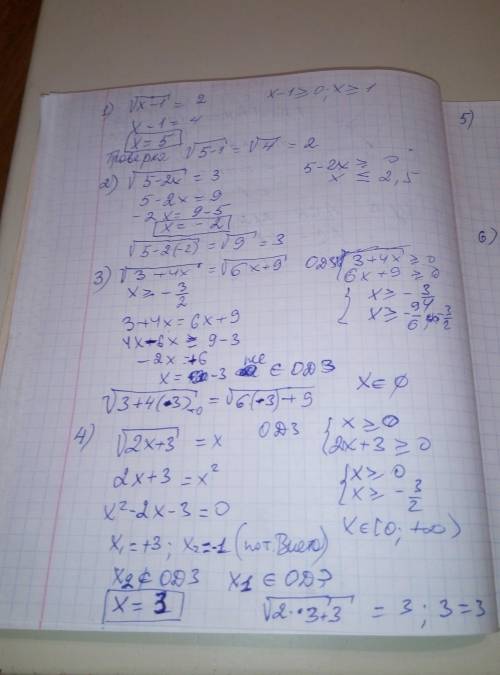 1) √x-1 = 2 x-1≥0; x≥1
x-1=4
x=5
Проверка √5-1 = √4 = 2
2) √5-2x = 3 5-2x ≥ 0
5-2x = 9 x ≤ 2,5
-2x = 9-5
x = -2
√5-2(-2) = √9 = 3
3) √3+4x = √6x+9 ОДЗ { 3+4x ≥ 0
x ≥ -3/2 6x+9 ≥ 0
{ x ≥ -3/4
3+4x = 6x+9 x ≥ -9/6 -3/2
4x-6x = 9-3
-2x = +6
x = -3 не ∈ ОДЗ
x∈ ∅
√3+4(-3) = √6(-3)+9
4) √2x+3 = x ОДЗ { x ≥ 0
2x+3 ≥ 0
2x+3 = x² { x ≥ 0
x ≥ -3/2
x²-2x-3=0
x∈[0; +∞)
x₁=+3; x₂=-1 (по т. Виета)
x2 ∉ ОДЗ x1 ∈ ОДЗ
x = 3 √2·3+3 = 3; 3=3
5)
6)